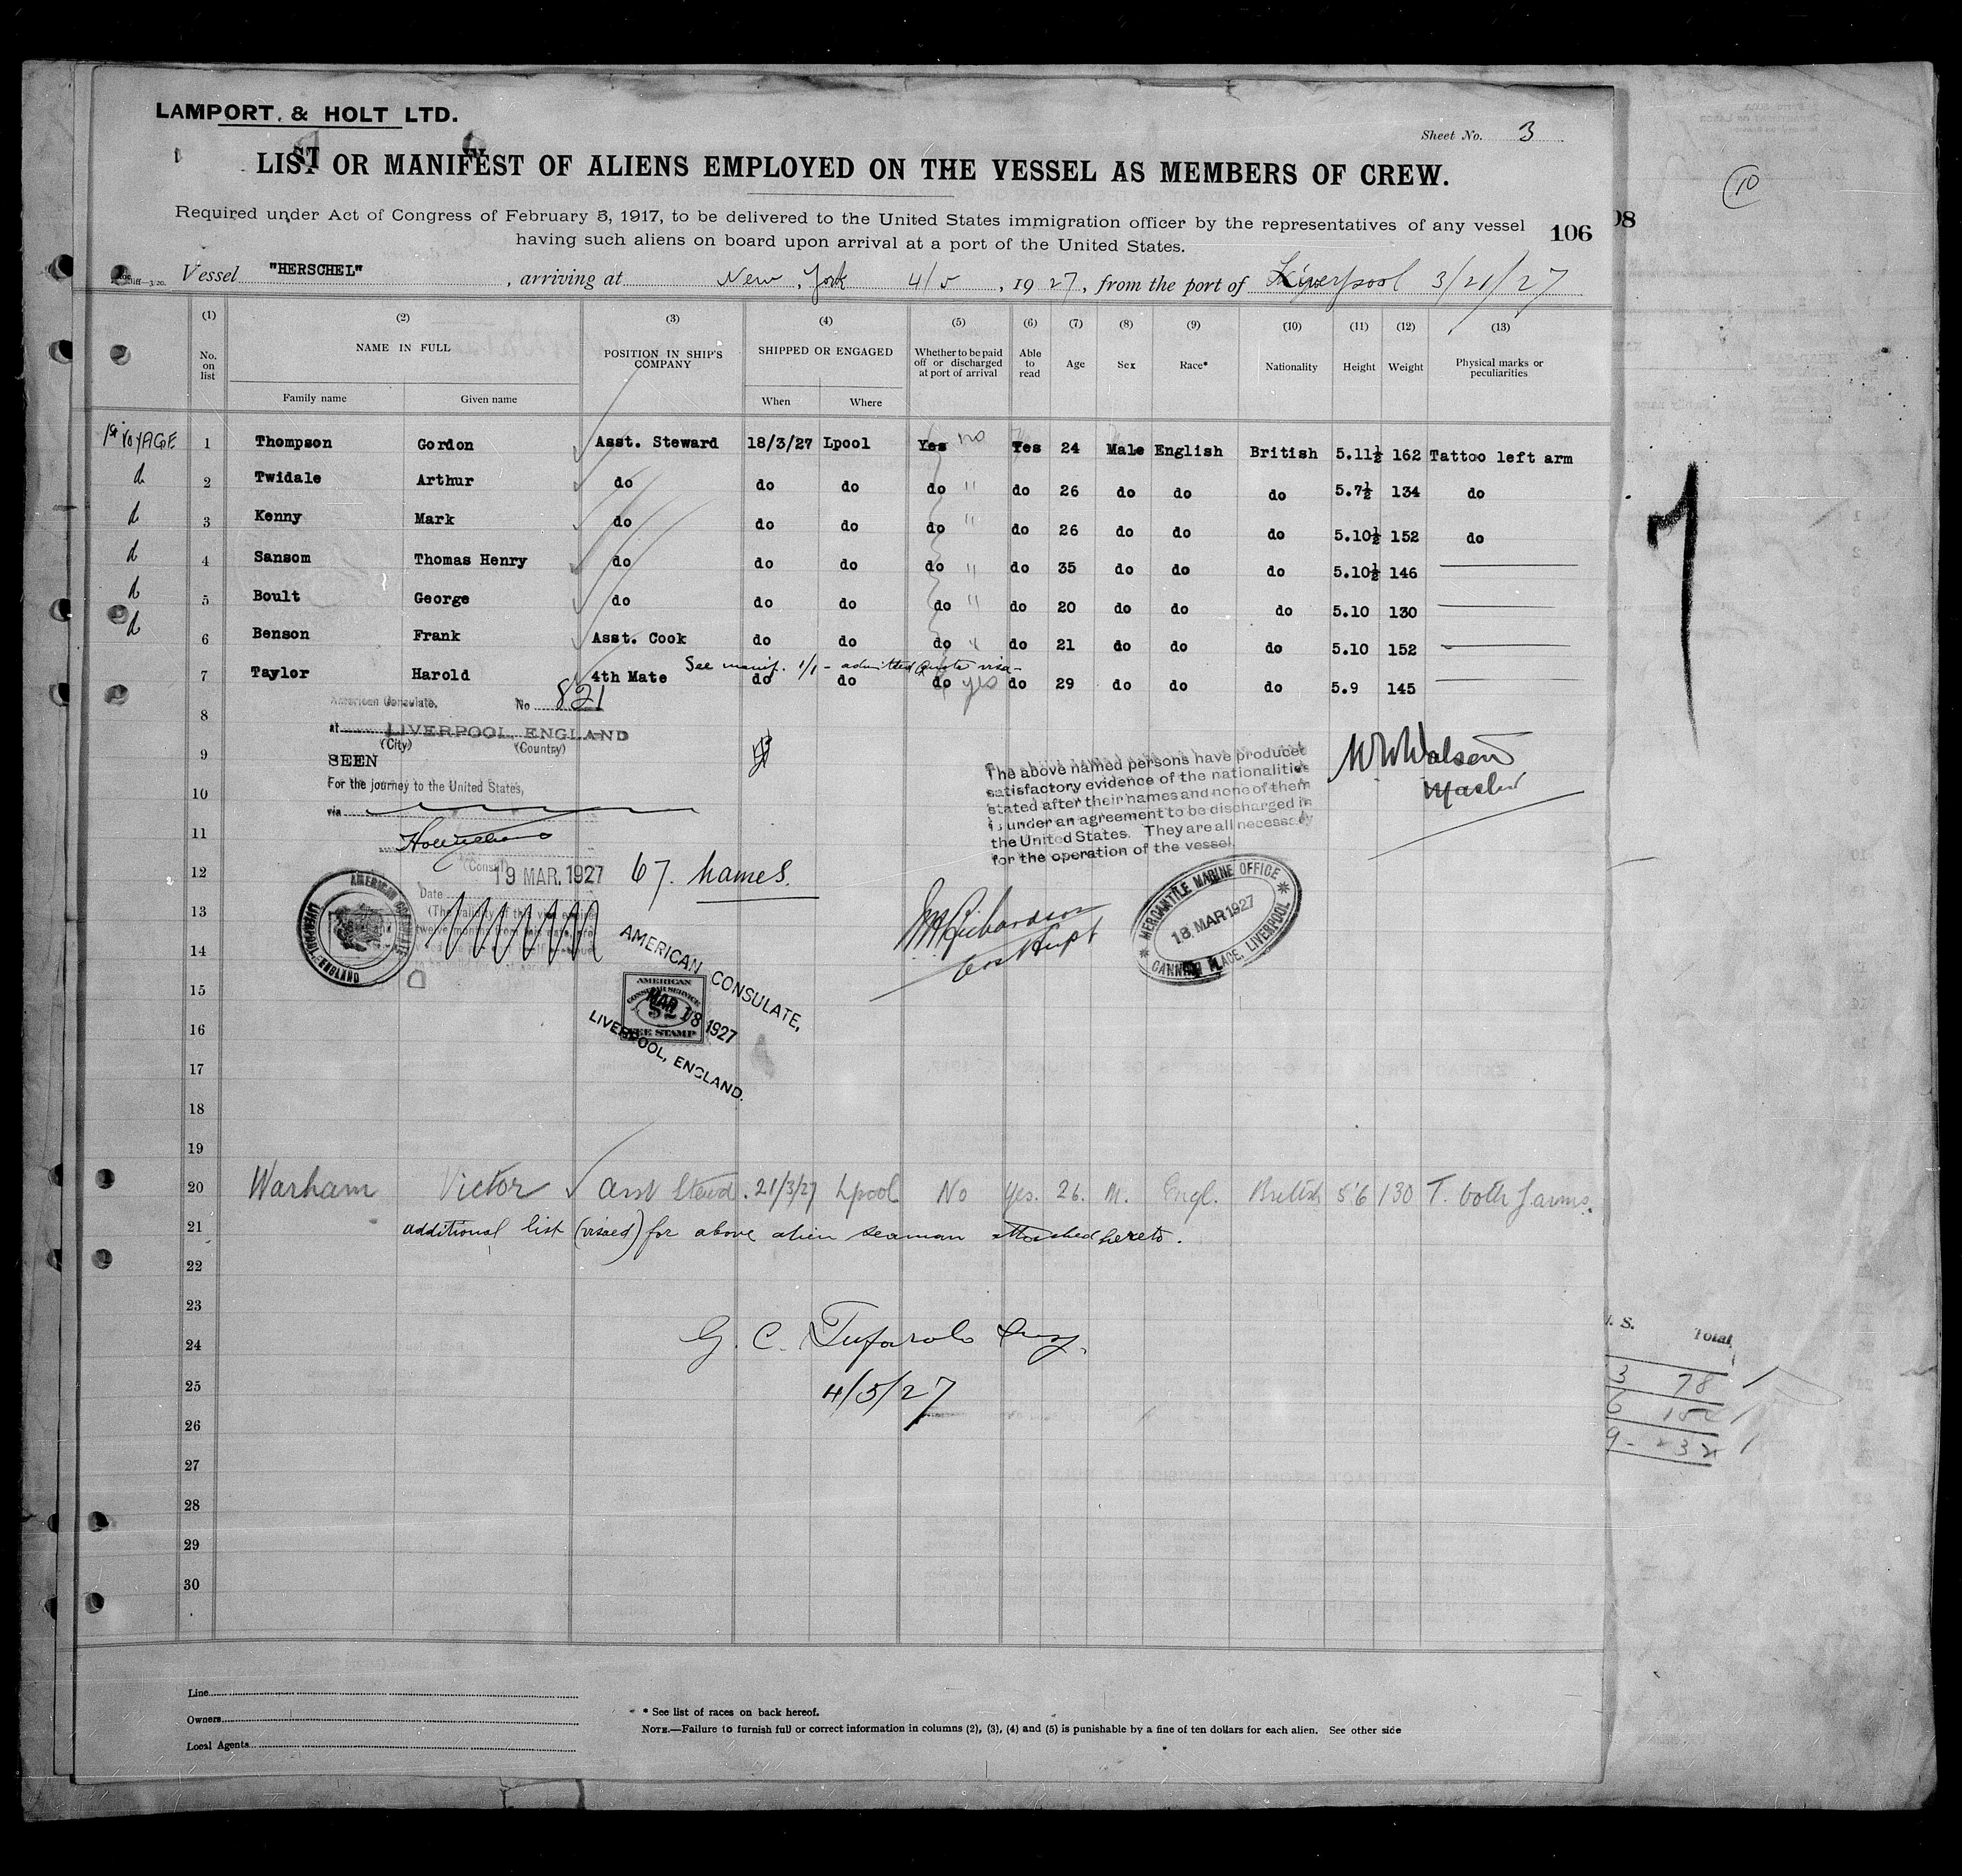 LAMPORT & HOLT LTD.
Sheet No. 3
LIST OR MANIFEST OF ALIENS EMPLOYED ON THE VESSEL AS MEMBERS OF CREW.
10
Required under Act of Congress of February 5, 1917, to be delivered to the United States immigration officer by the representatives of any vessel
having such aliens on board upon arrival at a port of the United States.
106
Vessel "HERSCHEL", arriving at New York 4/5, 1927, from the port of Liverpool 3/21/27
(1) (2) (3) (4) (5) (6) (7) (8) (9) (10) (11) (12) (13)
No. on list NAME IN FULL POSITION IN SHIP'S COMPANY SHIPPED OR ENGAGED Whether to be paid off or discharged at port of arrival Able to read Age Sex Race* Nationality Height Weight Physical marks or peculiarities
Family name Given name When Where
1st VOYAGE 1 Thompson Gordon Asst. Steward 18/3/27 Lpool Yes no Yes 24 Male English British 5.11½ 162 Tattoo left arm
d 2 Twidale Arthur do do do do " do 26 do do do 5.7½ 134 do
d 3 Kenny Mark do do do do " do 26 do do do 5.10½ 152 do
d 4 Sansom Thomas Henry do do do do " do 35 do do do 5.10½ 146
d 5 Boult George do do do do " do 20 do do do 5.10 130
d 6 Benson Frank Asst. Cook do do do " do 21 do do do 5.10 152
See manif. 1/1 - admitted quota visa -
7 Taylor Harold 4th Mate do do do yes do 29 do do do 5.9 145
American Consulate. No 821
8
at LIVERPOOL, ENGLAND
(City) (Country)
9
SEEN
For the journey to the United States,
10
via
11
(Consul)
12
19 MAR. 1927
Date
67. names.
The above named persons have produced
satisfactory evidence of the nationalities
stated after their names and none of them
is under an agreement to be discharged in
the United States. They are all necessary
for the operation of the vessel.
W W Walson
Master
13
14
AMERICAN CONSULATE
LIVERPOOL ENGLAND
MERCANTILE MARINE OFFICE
18. MAR 1927
CANNING PLACE, LIVERPOOL
Richardson
AMERICAN CONSULATE,
AMERICAN
CONSULAR SERVICE
MAR 18 1927
FEE STAMP
LIVERPOOL, ENGLAND.
15
16
17
18
19
20 Warham Victor Asst Stewd. 21/3/27 Lpool No Yes. 26. M. Engl. British 5'6 130 T. both f. arms.
21 additional list (visaed) for above alien seaman attached hereto.
22
23
24 G. C. Tufarolo Insp.
25 4/5/27
26
27
28
29
30
Line
Owners
Local Agents
* See list of races on back hereof.
NOTE.—Failure to furnish full or correct information in columns (2), (3), (4) and (5) is punishable by a fine of ten dollars for each alien. See other side
Total
3 78
6
9